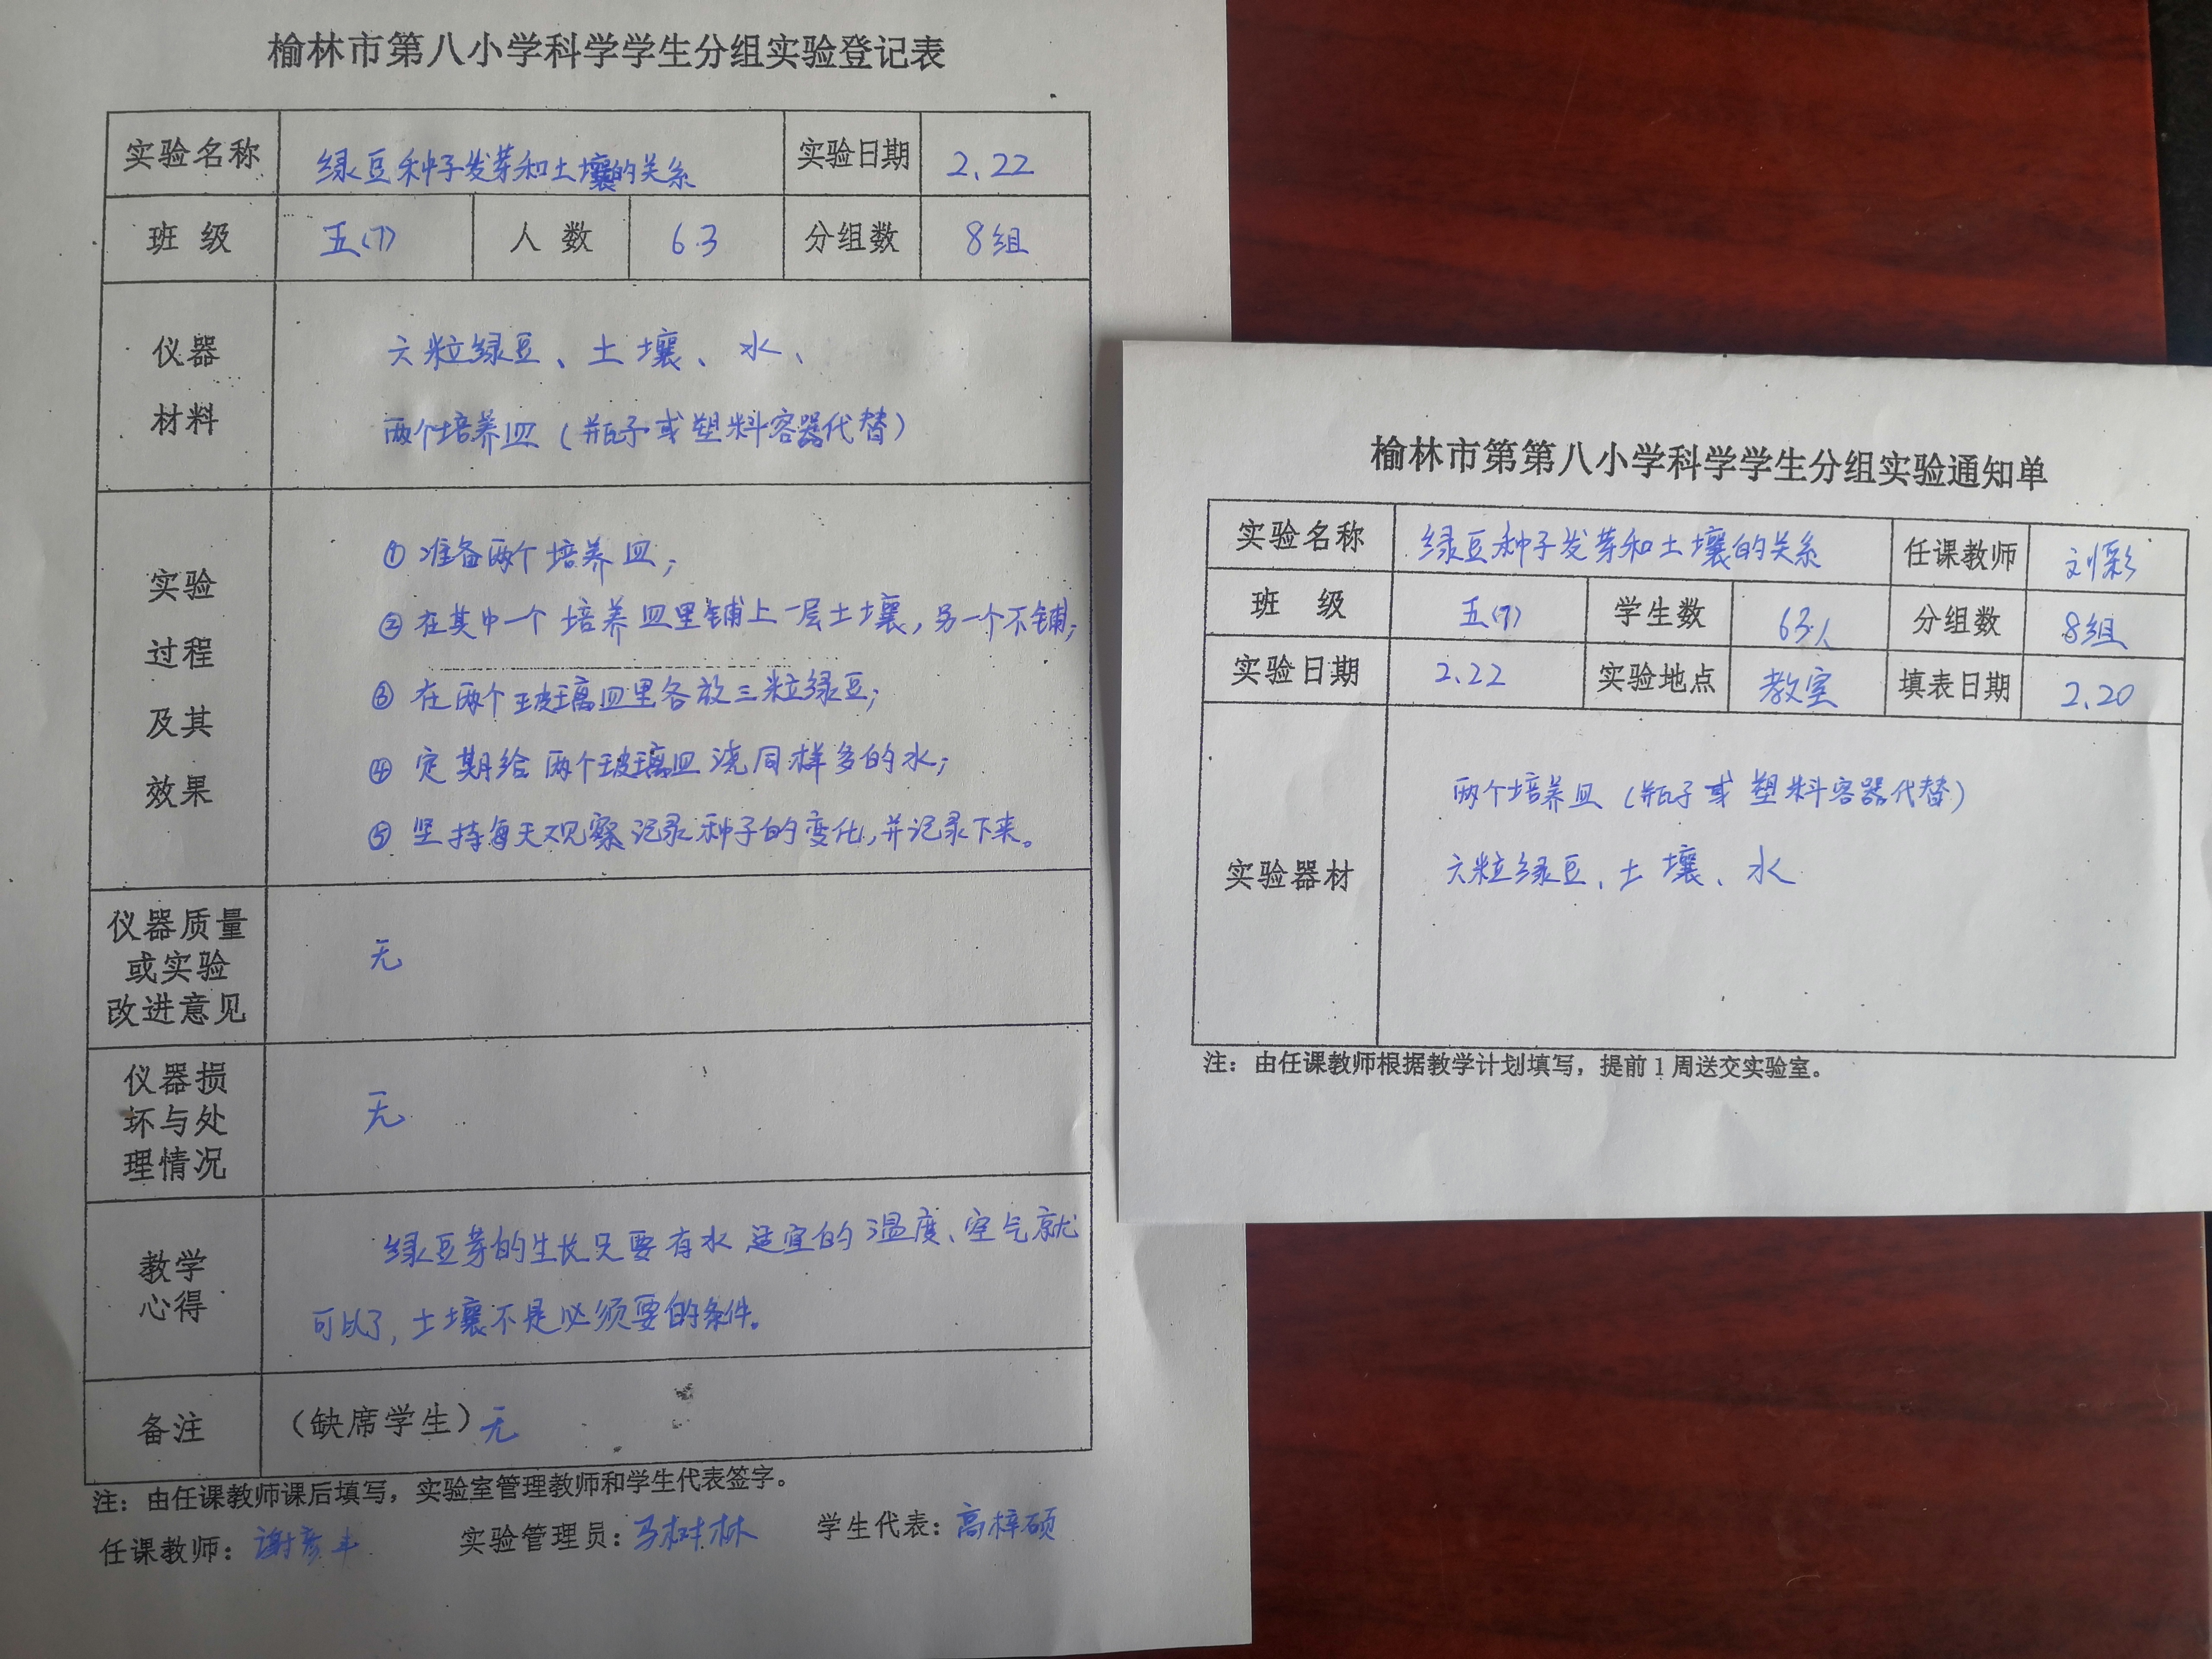 榆林市第八小学科学学生分组实验登记表
实验名称 绿豆种子发芽和土壤的关系 实验日期 2.22
班 级 五(7) 人 数 63 分组数 8组
仪器
材料
六粒绿豆、土壤、水、
两个培养皿(瓶子或塑料容器代替)
实验
过程
及其
效果
① 准备两个培养皿;
② 在其中一个培养皿里铺上一层土壤,另一个不铺;
③ 在两个玻璃皿里各放三粒绿豆;
④ 定期给两个玻璃皿浇同样多的水;
⑤ 坚持每天观察记录种子的变化,并记录下来。
仪器质量
或实验
改进意见
无
仪器损
坏与处
理情况
无
教学
心得
绿豆芽的生长只要有水、适宜的温度、空气就
可以了,土壤不是必须要的条件。
备注 (缺席学生)无
注:由任课教师课后填写,实验室管理教师和学生代表签字。
任课教师:谢彦 实验管理员:马树林 学生代表:高梓硕
榆林市第第八小学科学学生分组实验通知单
实验名称 绿豆种子发芽和土壤的关系 任课教师 刘彩
班 级 五(7) 学生数 63人 分组数 8组
实验日期 2.22 实验地点 教室 填表日期 2.20
实验器材
两个培养皿(瓶子或塑料容器代替)
六粒绿豆、土壤、水
注:由任课教师根据教学计划填写,提前1周送交实验室。